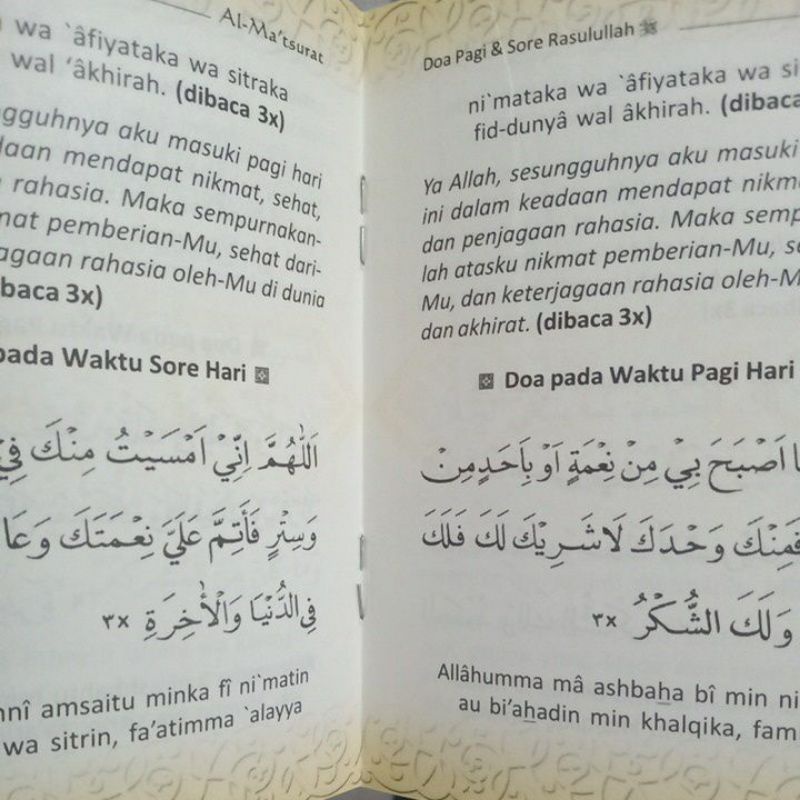 Al-Ma'tsurat
wa `âfiyataka wa sitraka
wal 'âkhirah. (dibaca 3x)
aku masuki pagi hari
mendapat nikmat, sehat,
rahasia. Maka sempurnakan-
pemberian-Mu, sehat dari-
rahasia oleh-Mu di dunia
3x)
Waktu Sore Hari
اَللّٰهُمَّ اِنِّيْ اَمْسَيْتُ مِنْكَ فِيْ
وَسِتْرٍ فَأَتِمَّ عَلَيَّ نِعْمَتَكَ
فِى الدُّنْيَا وَالْاٰخِرَةِ ٣x
amsaitu minka fî ni`matin
wa sitrin, fa'atimma `alayya
Doa Pagi & Sore Rasulullah ﷺ
ni`mataka wa `âfiyataka wa
fid-dunyâ wal âkhirah.
Ya Allah, sesungguhnya aku masuki
ini dalam keadaan mendapat
dan penjagaan rahasia. Maka
lah atasku nikmat pemberian-Mu,
Mu, dan keterjagaan rahasia
dan akhirat. (dibaca 3x)
Doa pada Waktu Pagi Hari
اَصْبَحَ بِيْ مِنْ نِعْمَةٍ اَوْ بِاَحَدٍ مِنْ
فَمِنْكَ وَحْدَكَ لَا شَرِيْكَ لَكَ فَلَكَ
وَلَكَ الشُّكْرُ ٣x
Allâhumma mâ ashbaha bî min
au bi'ahadin min khalqika,